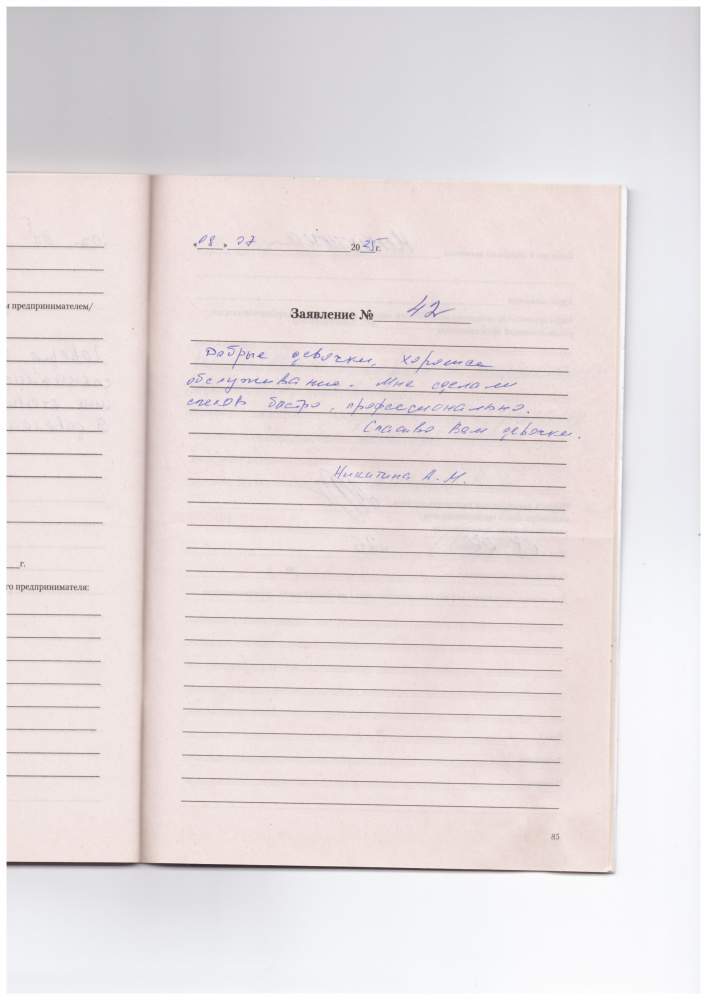 м предпринимателем/
г.
го предпринимателя:
«08» 07 2025г.
Заявление № 42
Добрые девочки, хорошее
обслуживание. Мне сделали
быстро, профессионально.
Спасибо Вам девочки.
Никитина А.М.
85